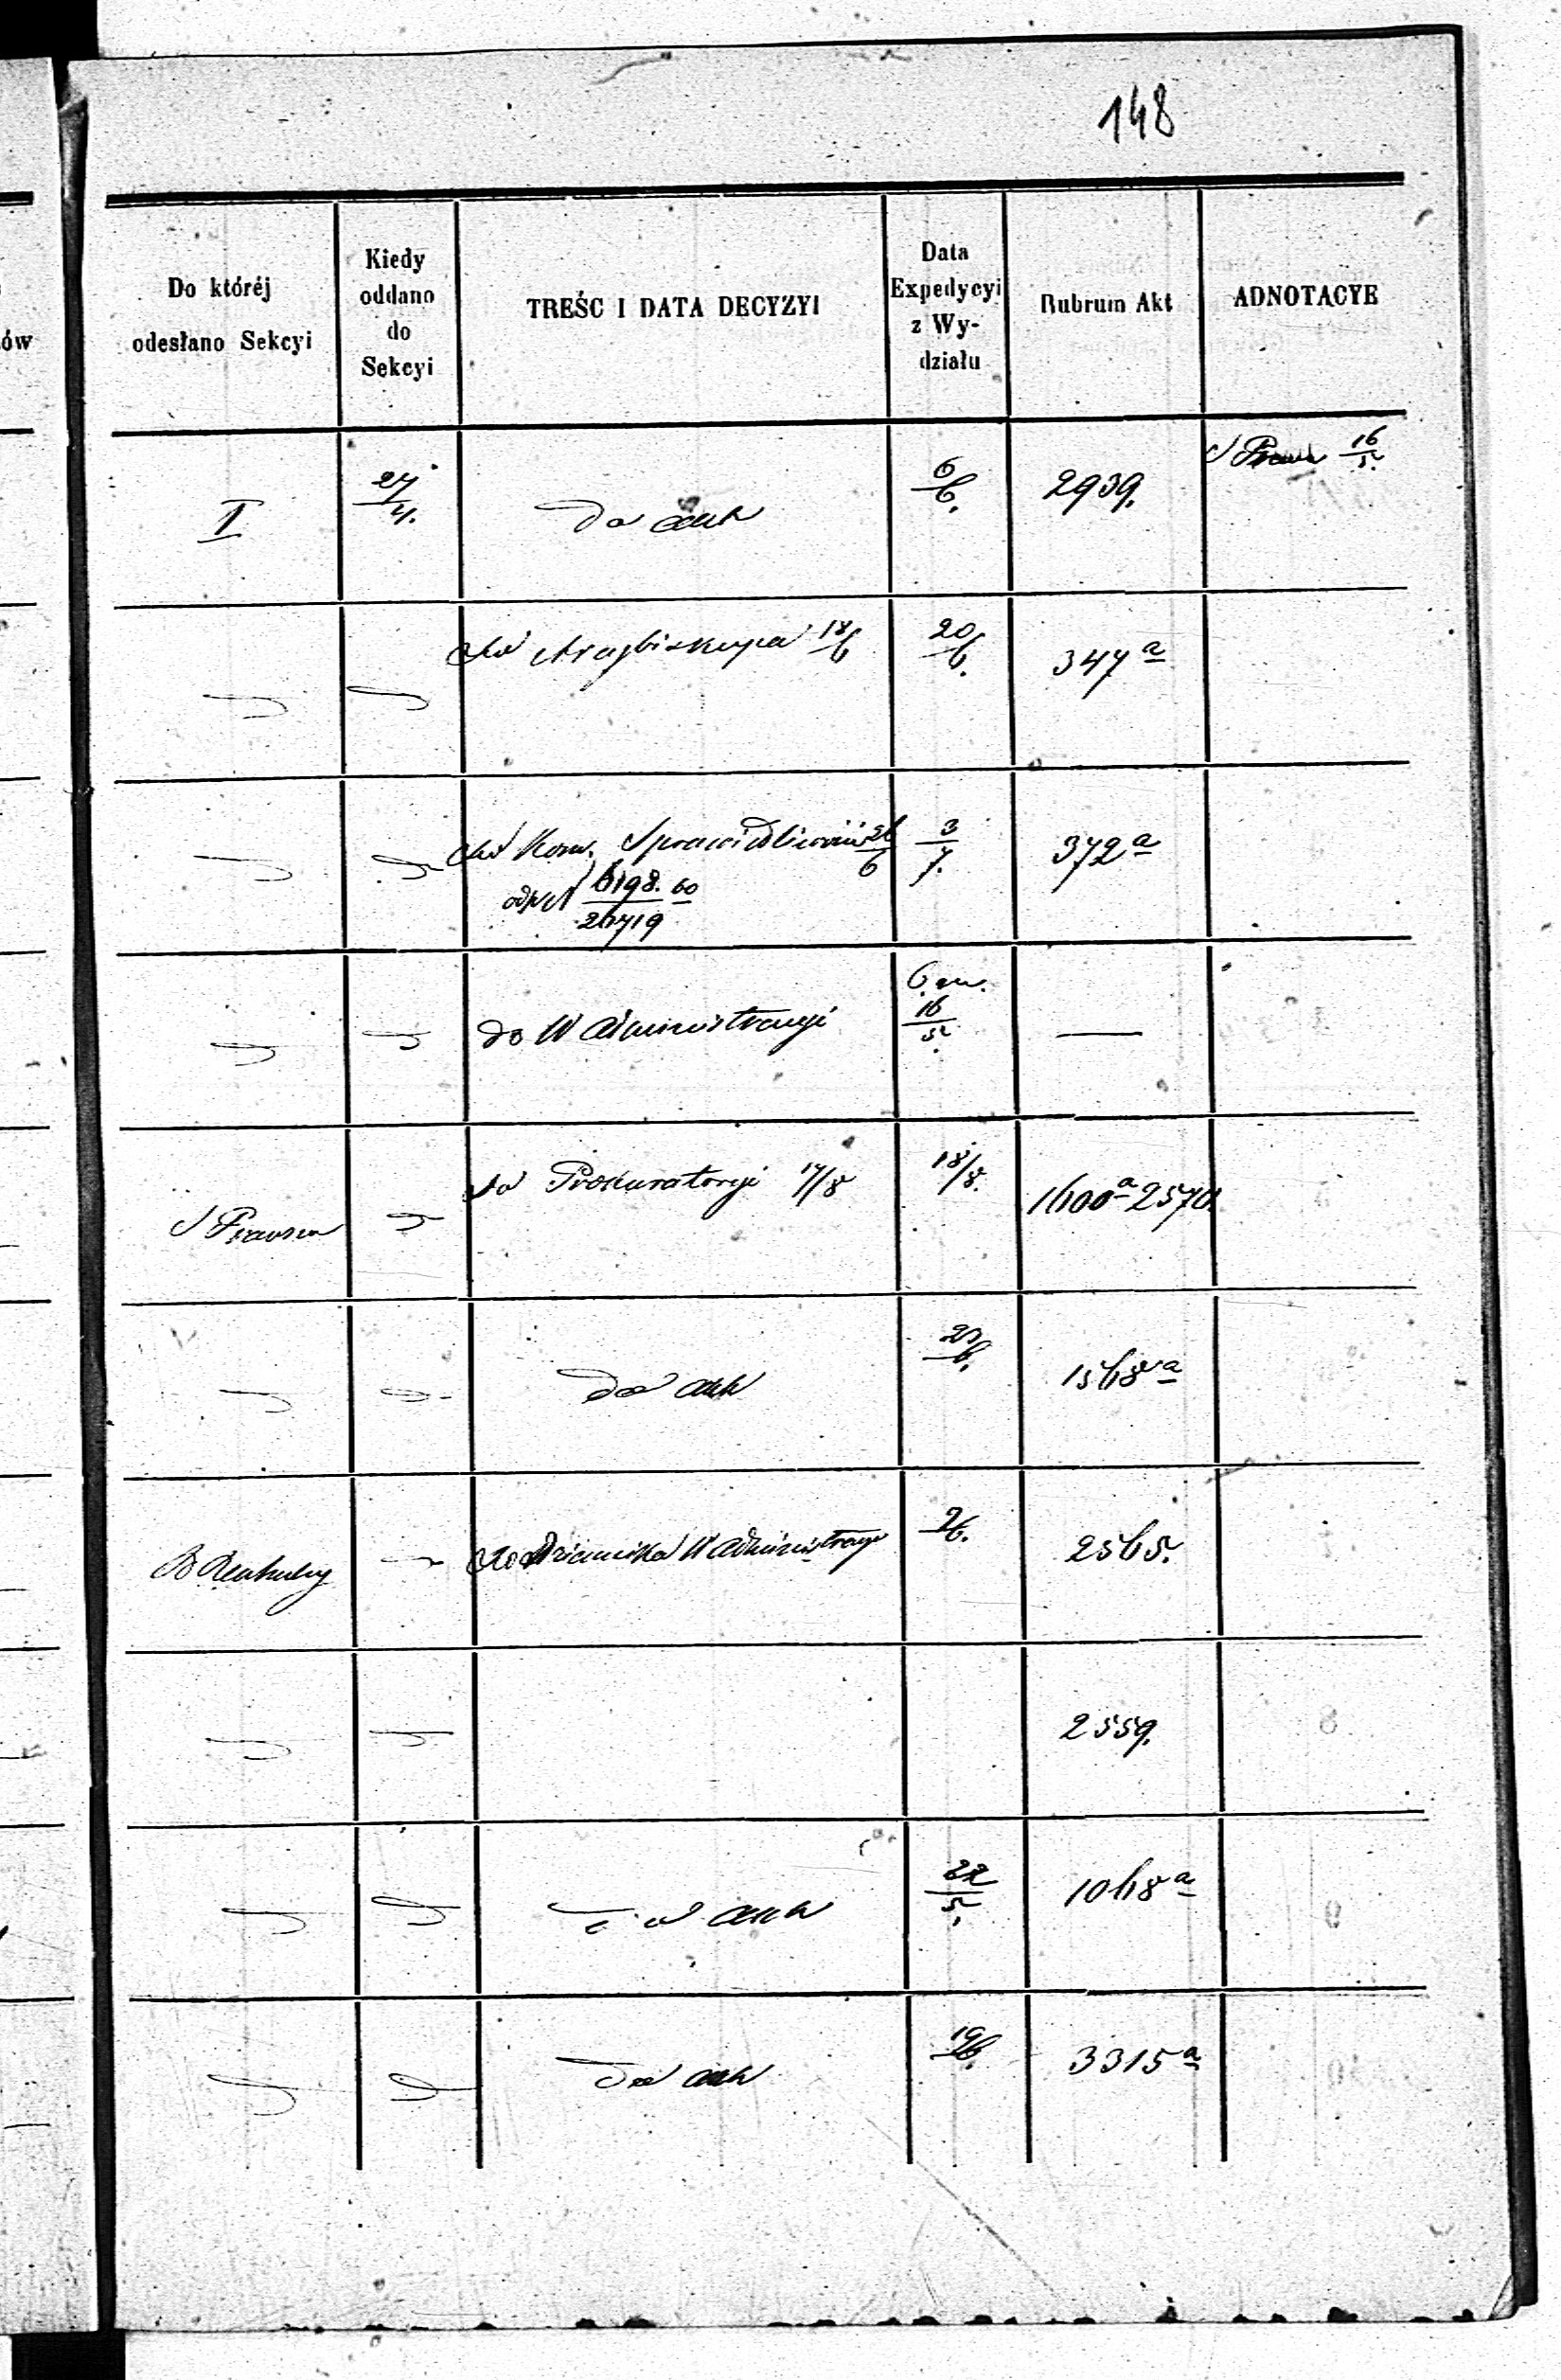 148
Do któréj odesłano Sekcyi
Kiedy oddano do Sekcyi
TREŚC I DATA DECYZYI
Data Expedycyi z Wy-działu
Rubrum Akt
ADNOTACYE
I 27/4. do akt 6/6. 2939. S Prawn 16/5.
do Arcybiskupa 18/6 20/6. 347 a
do Kom. Sprawiedliwości 26/6 3/7. 372 a
odp N 6198. 60
26719
do W Administracyi 6. m. 16/5. —
S Prawna do Prokuratoryi 17/8 18/8. 1600 a 2570.
do akt 1568 a
do Dziennika W Administracyi 2/6. 2565.
2559.
do akt 22/5. 1068 a
do akt 19/6. 3315 a